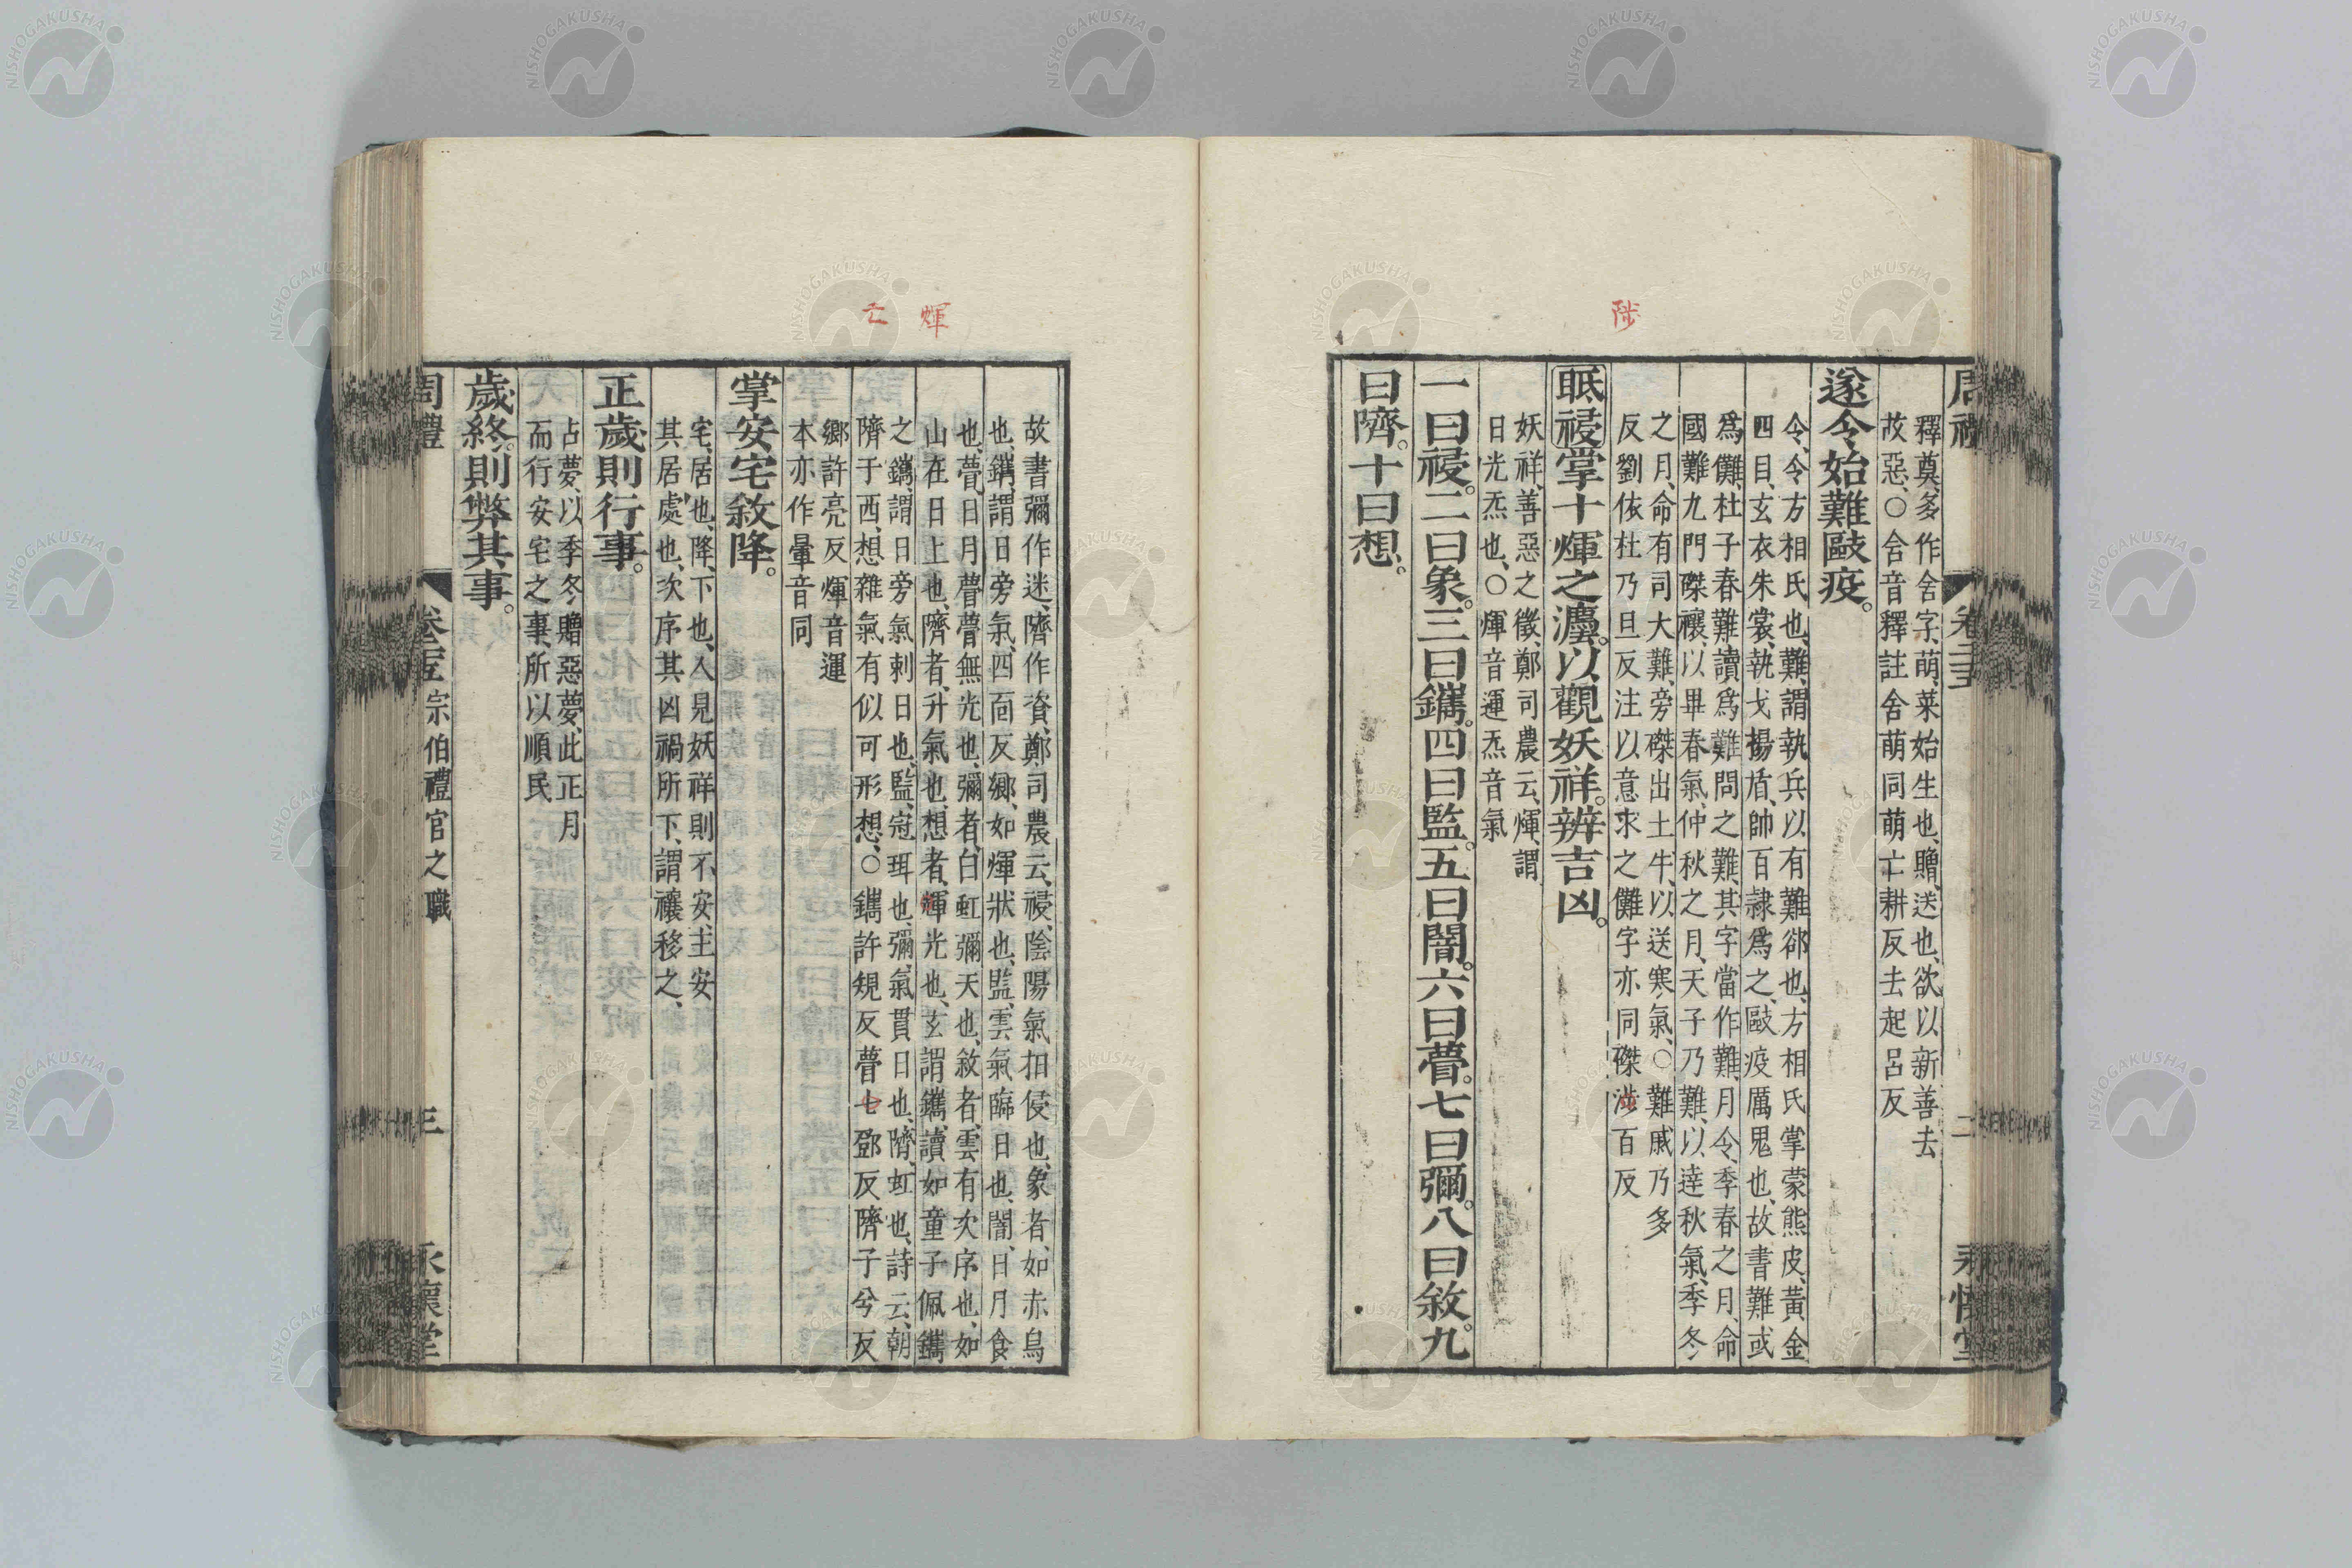 陟
周禮 卷二五 二 永懷堂
釋奠多作舍字萌菜始生也贈送也欲以新善去
故惡○舍音釋註舍萌同萌亡耕反去起呂反
遂令始難敺疫。
令令方相氏也難謂執兵以有難郤也方相氏掌蒙熊皮黃金
四目玄衣朱裳執戈揚盾帥百隸爲之敺疫厲鬼也故書難或
爲儺杜子春難讀爲難問之難其字當作難月令季春之月命
國難九門磔禳以畢春氣仲秋之月天子乃難以達秋氣季冬
之月命有司大難旁磔出土牛以送寒氣○難戚乃多
反劉依杜乃旦反注以意求之儺字亦同磔涉百反
眡祲掌十煇之灋。以觀妖祥。辨吉凶。
妖祥善惡之徵鄭司農云煇謂
日光炁也○煇音運炁音氣
一曰祲。二曰象。三曰鑴。四曰監。五曰闇。六曰瞢。七曰彌。八曰敘。九
曰隮。十曰想。
煇
亡
故書彌作迷隮作資鄭司農云祲陰陽氣相侵也象者如赤烏
也鑴謂日旁氣四面反鄉如煇狀也監雲氣臨日也闇日月食
也瞢日月瞢瞢無光也彌者白虹彌天也敘者雲有次序也如
山在日上也隮者升氣也想者輝光也玄謂鑴讀如童子佩鑴
之鑴謂日旁氣刺日也監冠珥也彌氣貫日也隮虹也詩云朝
隮于西想雜氣有似可形想○鑴許規反瞢七鄧反隮子兮反
鄉許亮反煇音運
本亦作暈音同
掌安宅敘降。
宅居也降下也人見妖祥則不安主安
其居處也次序其凶禍所下謂禳移之
正歲則行事。
占夢以季冬贈惡夢此正月
而行安宅之事所以順民
歲終。則弊其事。
周禮 卷二五 宗伯禮官之職 三 永懷堂